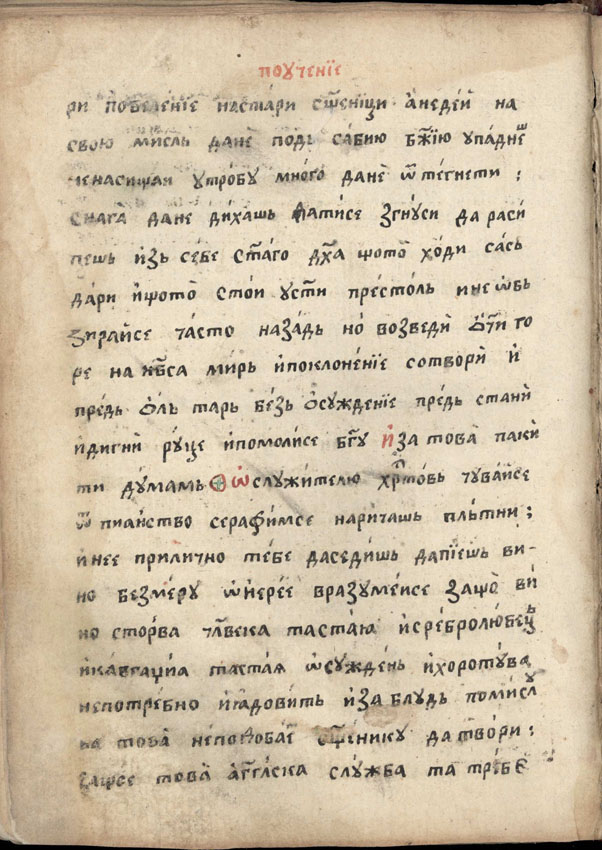 поꙋченїе
ри повеленїе настари сщ҃еници анедей на
свою мисль дане подь сабию бж҃їю ꙋпаднеш
ненасищаꙗ ꙋтробꙋ много дане ѿтегнети ;
снага дане дихашь ꙗатисе згнꙋси да раси
пешь изь себе ст҃аго дх҃а щото ходи сась
дари ищото стои ꙋсти престоль ине ѡбь
зирайсе часто назадь но возведи ѻчи го
ре на нб҃са мирь ипоклоненїе сотвори и
предь ѻльтарь безь ѻсꙋжденїе предь стани
идигни рꙋце ипомолисе бг҃ꙋ иза това паки
ти дꙋмамь ѡ слꙋжителю хрⷭ҇товь чꙋвайсе
ѿ пианство серафимсе наричашь пльтни ;
инее прилично тебе даседишь дапїешь ви-
но безмерꙋ ѡ иерее вразꙋмейсе защо ви
но сторва чл҃века тащаю исребролюбець
икавгациа тащаꙗ ѡсꙋждень ихоротꙋва
непотребно иꙗдовить иза блꙋдь помисл
на това неподобае сщ҃еникꙋ да твори ;
защее това агг҃лска слꙋжба та требе